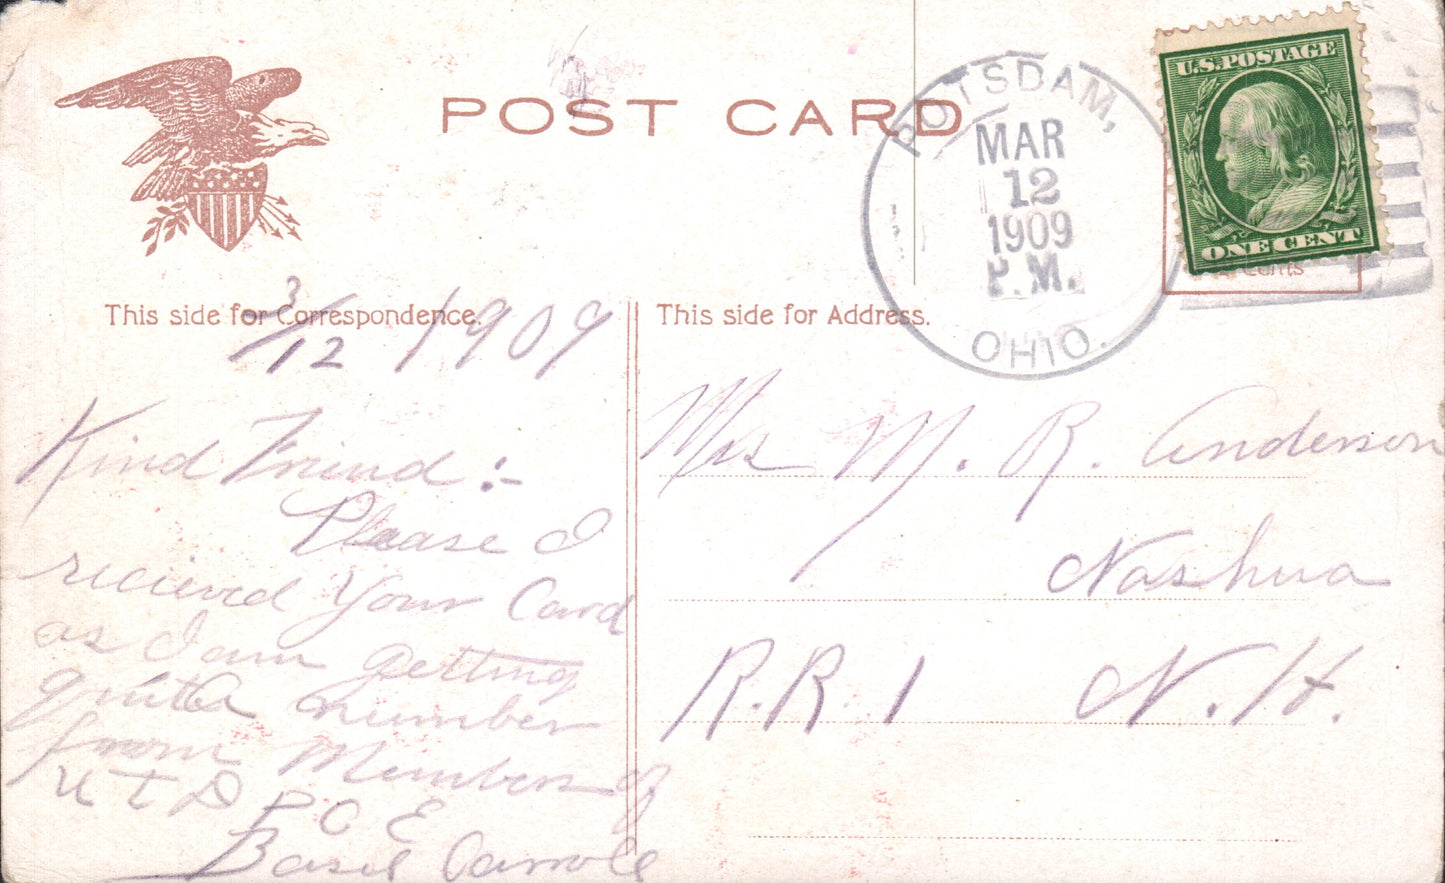 POST CARD
POTSDAM,
MAR
12
1909
P.M.
OHIO.
U.S. POSTAGE
ONE CENT
Cents
This side for Correspondence.
3/12 1909
Kind Friend :-
Please I
recieved Your Card
as I am getting
quite a number
from Members of
U T D P C E
Basil Carroll
This side for Address.
Mrs M. R. Anderson
Nashua
R.R. 1 N. H.